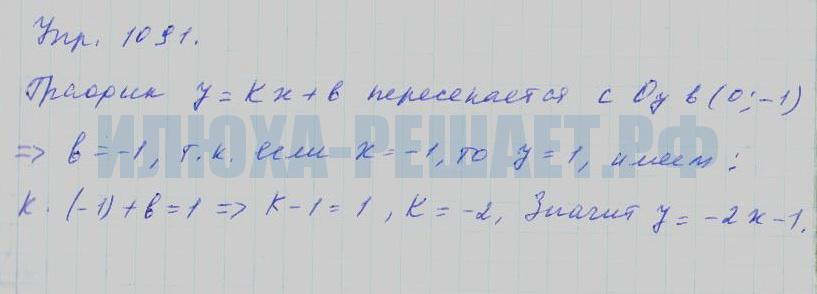 Упр. 1091.
График y = kx + b пересекается с Oy в (0; -1)
=> b = -1, т.к. если x = -1, то y = 1, имеем:
ИЛЮХА-РЕШАЕТ.РФ
k · (-1) + b = 1 => k - 1 = 1, k = -2, Значит y = -2x - 1.